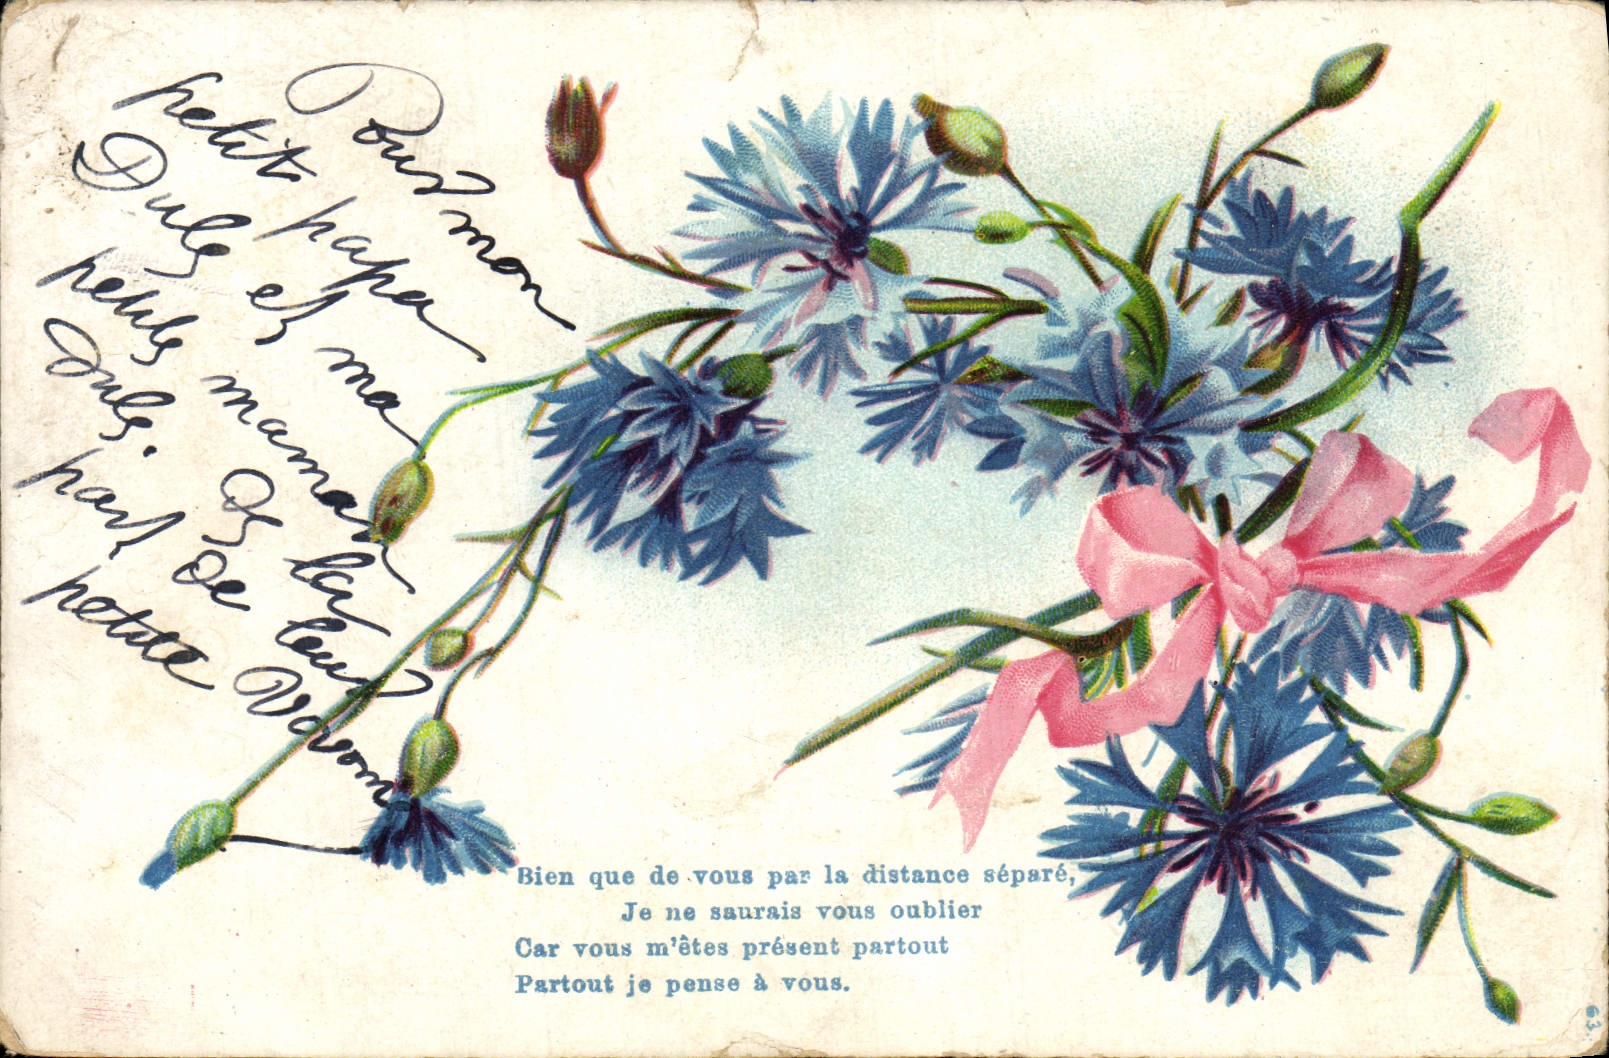 Pour mon
petit papa
Jules et ma
petite maman
Jules. De la
part de leur
petite
Bien que de vous par la distance séparé,
Je ne saurais vous oublier
Car vous m'êtes présent partout
Partout je pense à vous.
63